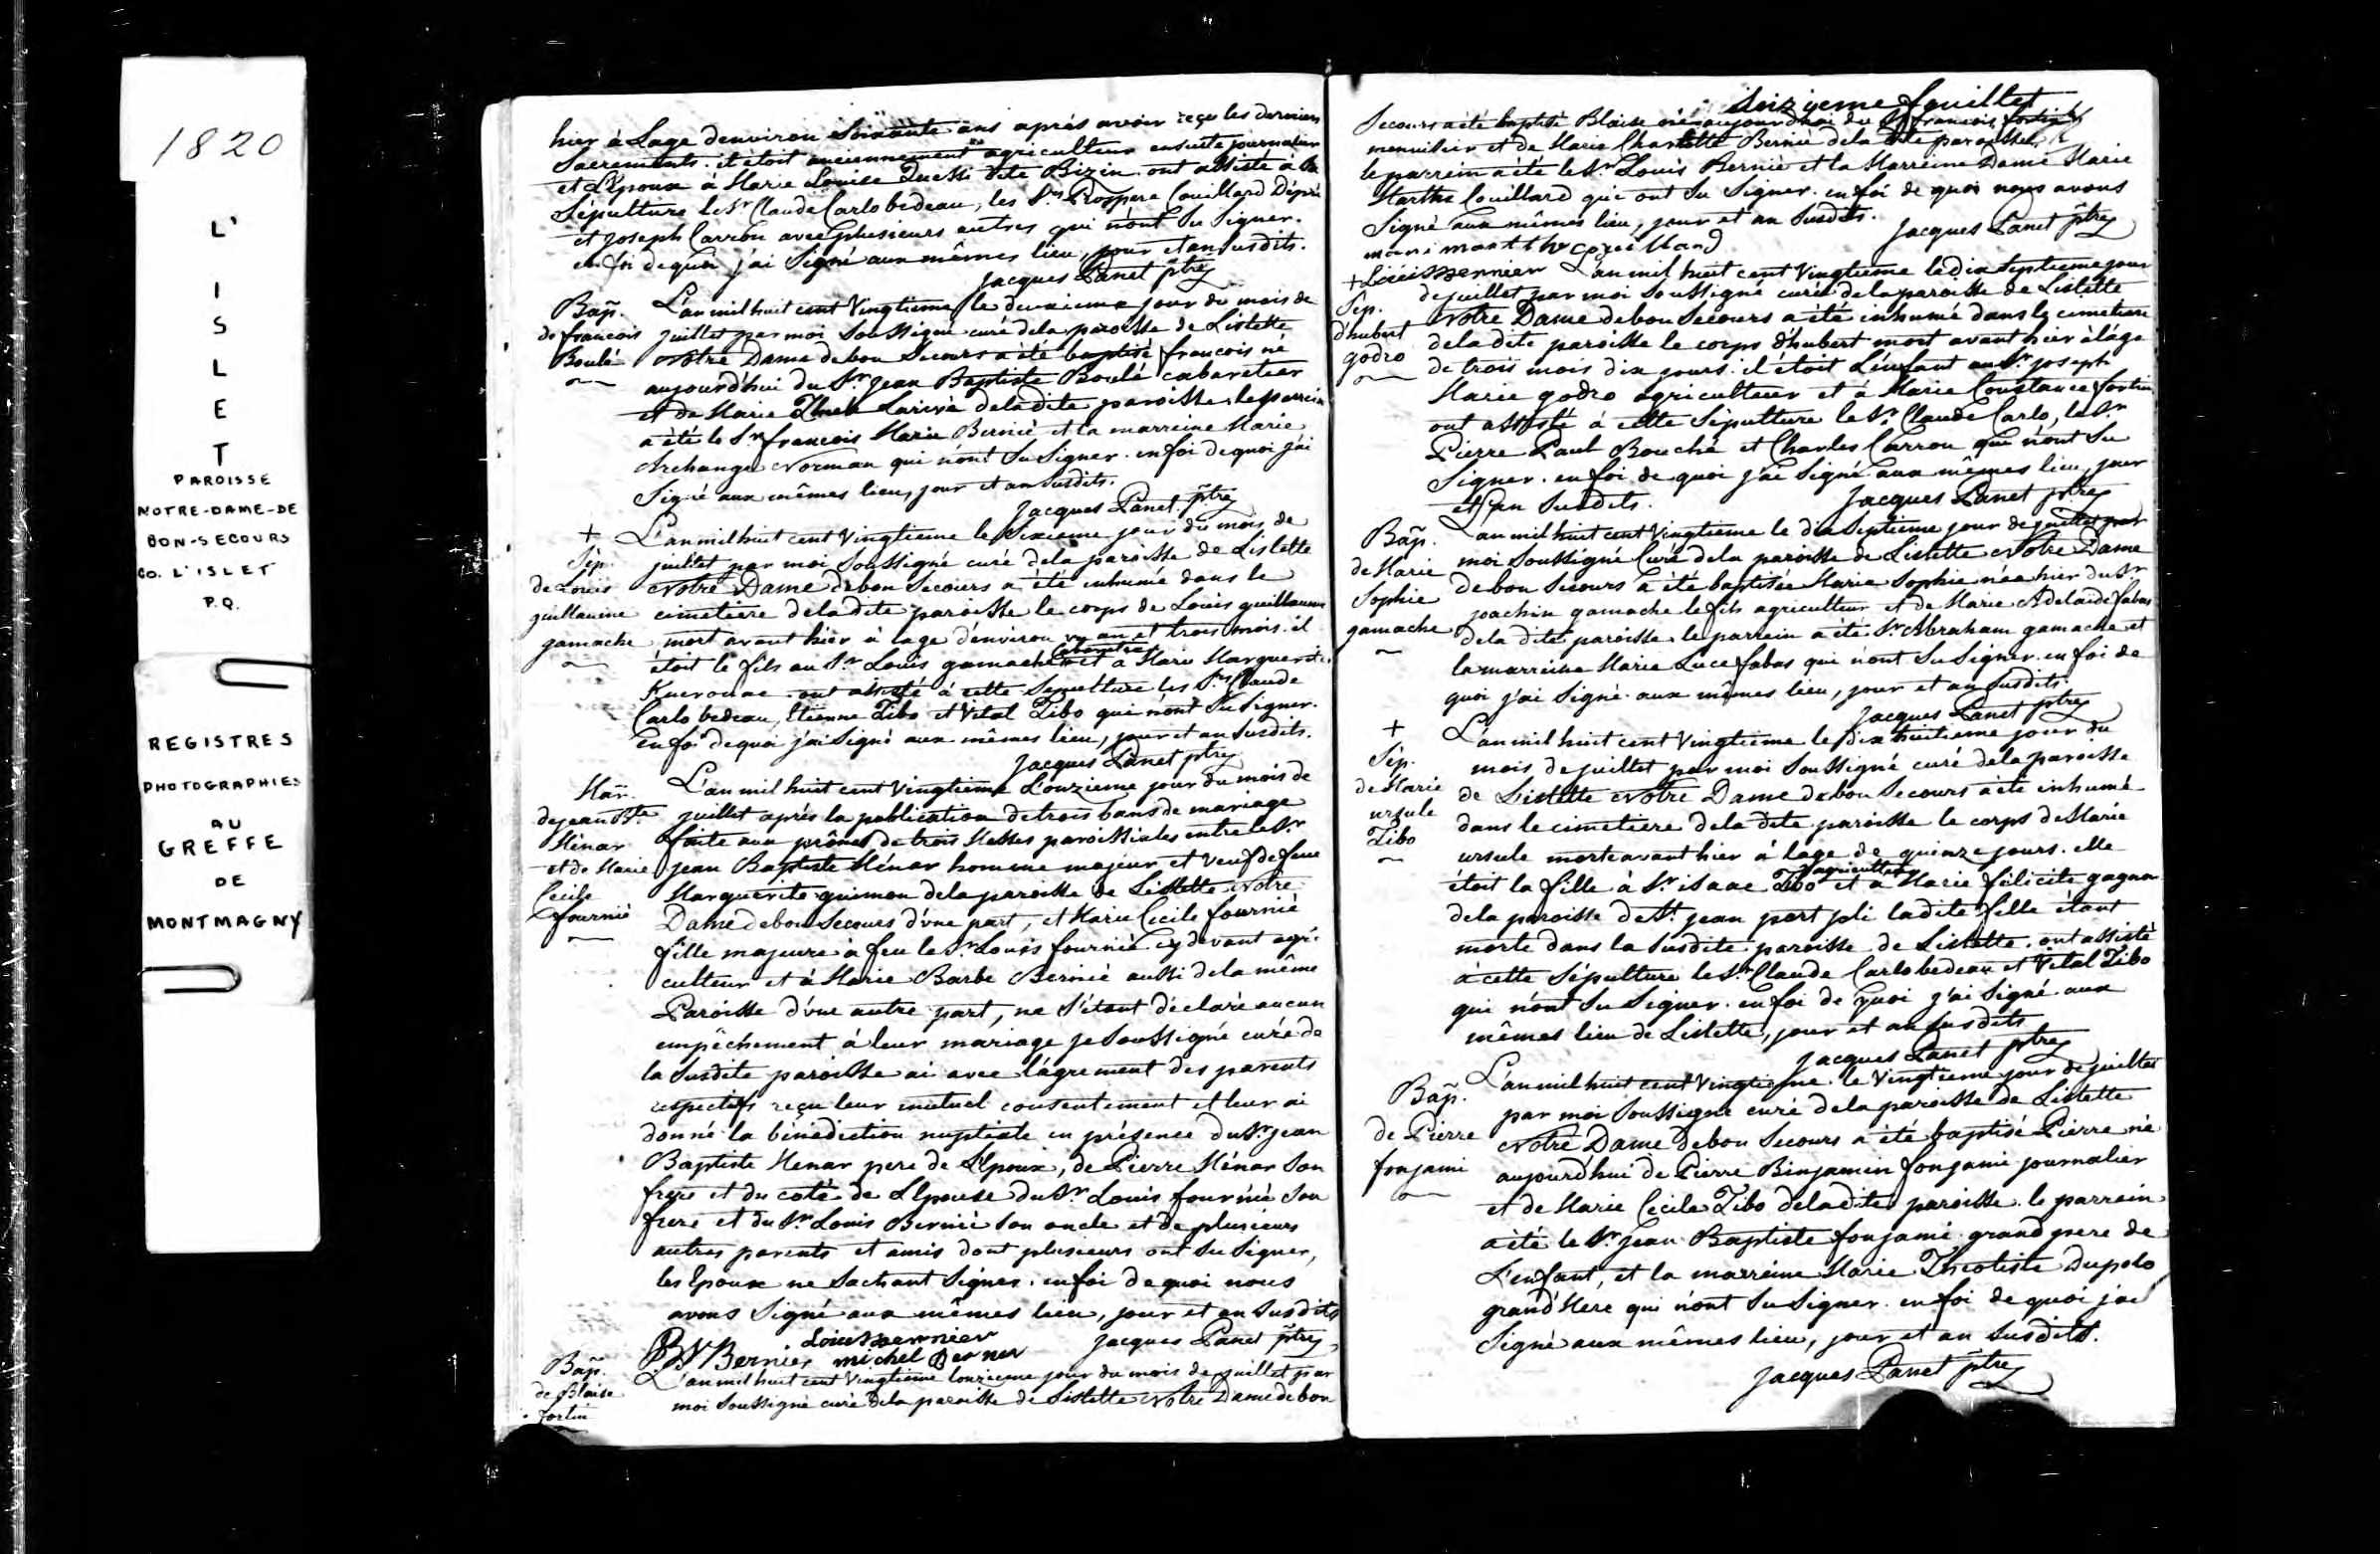 1820
L'
I
S
L
E
T
PAROISSE
NOTRE-DAME-DE
BON-SECOURS
CO. L'ISLET
P.Q.
REGISTRES
PHOTOGRAPHIES
AU
GREFFE
DE
MONTMAGNY
hier à Lage d'environ soixante ans après avoir reçu les derniers
Sacrements. il étoit anciennement agriculteur ensuite journalier
et L'Epoux à Marie Louise dite Bizin. ont assisté à la
Sépulture le Sr. Claude Carlo bedeau, les Srs. Prospere Couillard Dépré
et joseph Carron avec plusieurs autres qui n'ont Su Signer.
en foi de quoi j'ai Signé aux mêmes lieu, jour et an susdits.
Jacques Panet ptre
Bap. L'an mil huit cent Vingtieme le deuxieme jour du mois de
de francois juillet par moi Soussigné curé de la paroisse de Listette
Boulé Notre Dame de bon Secours a été baptisé francois né
aujourd'hui du Sr. jean Baptiste Boulé cabaretier
et de Marie Larivé de la dite paroisse. le parrein
a été le Sr. francois Marie Bernié et la marreine Marie
Archange Norman qui n'ont Su Signer. en foi de quoi j'ai
Signé aux mêmes lieu, jour et an Susdits.
Jacques Panet ptre
+ L'an mil huit cent Vingtieme le Sixieme jour du mois de
Sép. juillet par moi Soussigné curé de la paroisse de Listette
de Louis Notre Dame de bon Secours a été inhumé dans le
guillaume cimetiere de la dite paroisse le corps de Louis guillaume
gamache mort avant hier à lage d'environ un an et trois mois. il
cabaretier
étoit le fils au Sr. Louis gamache et à Marie Marguerite
Kuerouac. ont assisté à cette Sepulture les Srs. Claude
Carlo bedeau, Etienne Tibo et Vital Tibo qui n'ont Su Signer.
En foi de quoi j'ai Signé aux mêmes lieu, jour et an Susdits.
Jacques Panet ptre
Mar. L'an mil huit cent Vingtieme L'onzieme jour du mois de
de jean Bte. juillet après la publication de trois bans de mariage
Ménar faite aux prônes de trois Messes paroissiales entre le Sr.
et de Marie jean Baptiste Ménar homme majeur et Veuf de feue
Cecile Marguerite guimon de la paroisse de Listette Notre
fournié Dame de bon Secours d'une part, et Marie Cecile fournié
fille majeure à feu le Sr. Louis fournié cy devant agri-
culteur et à Marie Barbe Bernié aussi de la même
Paroisse d'une autre part, ne S'étant déclaré aucun
empêchement à leur mariage je Soussigné curé de
la Susdite paroisse ai avec l'agrement des parents
respectifs reçu leur mutuel consentement et leur ai
donné la bénédiction nuptiale en présence du Sr. jean
Baptiste Menar pere de L'Epoux, de Pierre Ménar Son
frere et du coté de L'Epouse du Sr. Louis fournié Son
frere et du Sr. Louis Bernié Son oncle et de plusieurs
autres parents et amis dont plusieurs ont Su Signer,
les Epoux ne Sachant Signer. en foi de quoi nous
avons Signé aux mêmes lieu, jour et an Susdits
Louis Bernier
Bernier michel Bernier Jacques Panet ptre
Bap. L'an mil huit cent Vingtieme l'onzieme jour du mois de juillet par
de Blaise moi Soussigné curé de la paroisse de Listette Notre Dame de bon
fortin
Seizieme feuillet
Secours a été baptisé Blaise né aujourd'hui du Sr. francois fortin
menuisier et de Marie Charlotte Bernié de la dite paroisse.
le parrein a été le Sr. Louis Bernié et la Marreine Dame Marie
Marthe Couillard qui ont Su Signer. en foi de quoi nous avons
Signé aux mêmes lieu, jour et an Susdits.
Jacques Panet ptre
+ Louis Bernnier L'an mil huit cent Vingtieme le dix Septieme jour
de juillet par moi Soussigné curé de la paroisse de Listette
Sép. Notre Dame de bon Secours a été inhumé dans le cimetiere
d'hubert de la dite paroisse le corps d'hubert mort avant hier à l'age
godro de trois mois dix jours. il étoit L'enfant au Sr. joseph
Marie godro agriculteur et à Marie Constance fortin
ont assisté à cette Sépulture le Sr. Claude Carlo, le Sr.
Pierre Paul Bouché et Charles Carron qui n'ont Su
Signer. en foi de quoi j'ai Signé aux mêmes lieu, jour
et an Susdits. Jacques Panet ptre
Bap. L'an mil huit cent Vingtieme le dix Septieme jour de juillet par
moi Soussigné Curé de la paroisse de Listette Notre Dame
de Marie de bon Secours a été baptisée Marie Sophie née hier du Sr.
Sophie joachin gamache le fils agriculteur et de Marie Adelaide fabas
gamache de la dite paroisse. le parrein a été Sr. Abraham gamache et
la marreine Marie Luce fabas qui n'ont Su Signer. en foi de
quoi j'ai Signé aux mêmes lieu, jour et an Susdits.
Jacques Panet ptre
+ L'an mil huit cent Vingtieme le dix huitieme jour du
Sép. mois de juillet par moi Soussigné curé de la paroisse
de Marie de Listette Notre Dame de bon Secours a été inhumé
ursule dans le cimetiere de la dite paroisse le corps de Marie
Tibo ursule morte avant hier à lage de quinze jours. elle
agriculteur
étoit la fille à Sr. isaac Tibo et à Marie félicité gagnon
de la paroisse de St. jean port joli la dite fille étant
morte dans la susdite paroisse de Listette. ont assisté
à cette Sépulture le Sr. Claude Carlo bedeau et Vital Tibo
qui n'ont Su Signer. en foi de quoi j'ai Signé aux
mêmes lieu de Listette, jour et an Susdits
Jacques Panet ptre
L'an mil huit cent Vingtieme le Vingtieme jour de juillet
Bap. par moi Soussigné curé de la paroisse de Listette
de Pierre Notre Dame de bon Secours a été baptisé Pierre né
fonjami aujourd'hui de Pierre Binjamin fonjami journalier
et de Marie Cecile Tibo de la dite paroisse. le parrain
a été le Sr. jean Baptiste fonjami grand pere de
L'enfant, et la marreine Marie Dupolo
grand Mere qui n'ont Su Signer. en foi de quoi jai
Signé aux mêmes lieu, jour et an Susdits.
Jacques Panet ptre